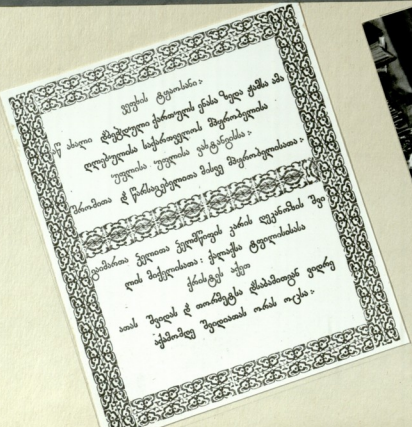 ვეფხის ტყაოსანი:
აწ ახალი დაბეჭდილი ქართულს ენასა ზედა ჟამსა ამა
ღლებულისა საქართველოს მპყრობელისა
უფლისა უფლისა ვახტანგისსა:
შრომითა და წარსაგებელითა მისვე მპყრობელისათა:
გაიმართა ჴელითა ჴელმწიფის კარის დეკანოზის შვი
ლის მიქელისათა: ქალაქსა ტფილისისასა
ქრისტეს აქეთ
ათას შვიდას და თორმეტსა დასაბამითგან ვიდრე
აქამომდე შვიდიათას ორას ოცსა: